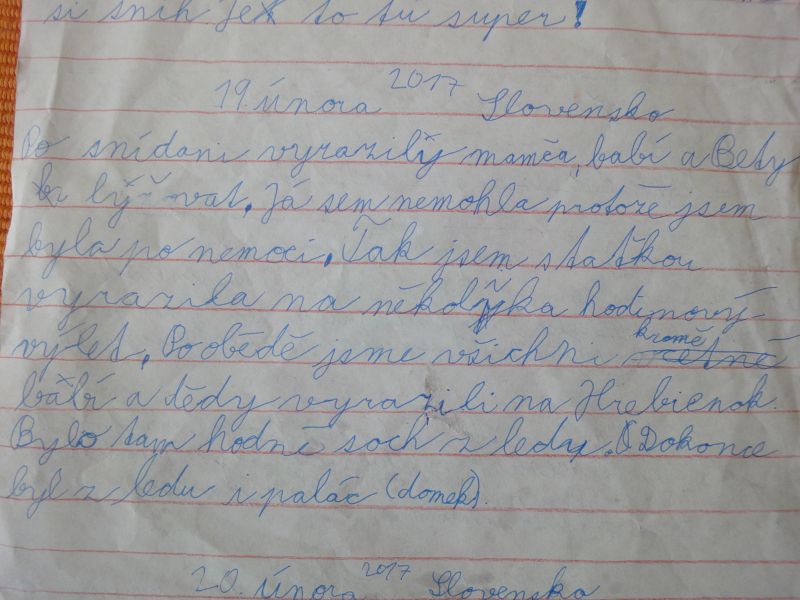 si sníh je to tu super!
19. února 2017 Slovensko
Po snídani vyrazily mamča, babí a Bety
lyžovat. Já sem nemohla protože jsem
byla po nemoci. Tak jsem s taťkou
vyrazila na několika hodinový
výlet. Po obědě jsme všichni kromě
babí a dědy vyrazili na Hrebienok.
Bylo tam hodně soch z ledu. Dokonce
byl z ledu i palác (domek).
20. února 2017 Slovensko